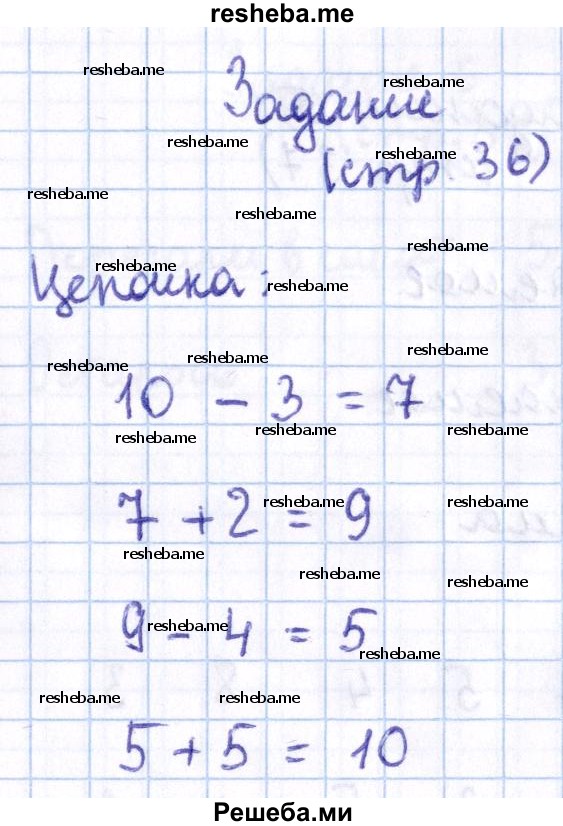 resheba.me
resheba.me
Задание
resheba.me
resheba.me
resheba.me
(стр. 36)
resheba.me
resheba.me
resheba.me
resheba.me
Цепочка:
resheba.me
resheba.me
resheba.me
resheba.me
10 - 3 = 7
resheba.me
resheba.me
resheba.me
resheba.me
resheba.me
7 + 2 = 9
resheba.me
resheba.me
resheba.me
resheba.me
9 - 4 = 5
resheba.me
resheba.me
resheba.me
5 + 5 = 10
Решеба.ми